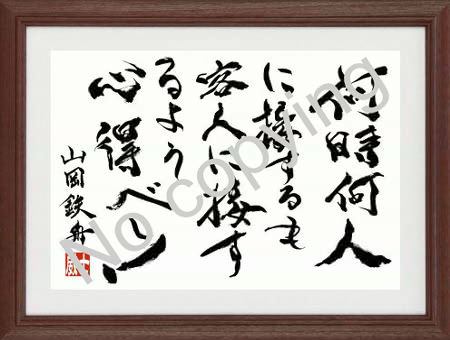 何時何人
に接するも
客人に接す
るよう
心得べし
山岡鉄舟
No copying